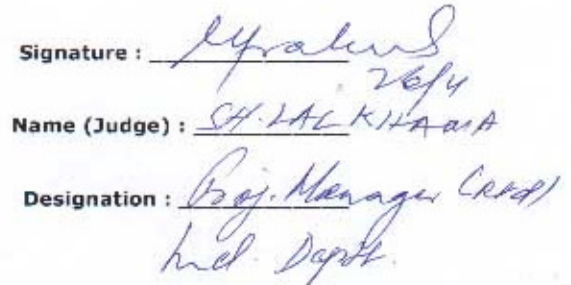 Signature :
26/4
Name (Judge) : SH. LAL
Designation : Proj. Manager
Ind. Deptt.